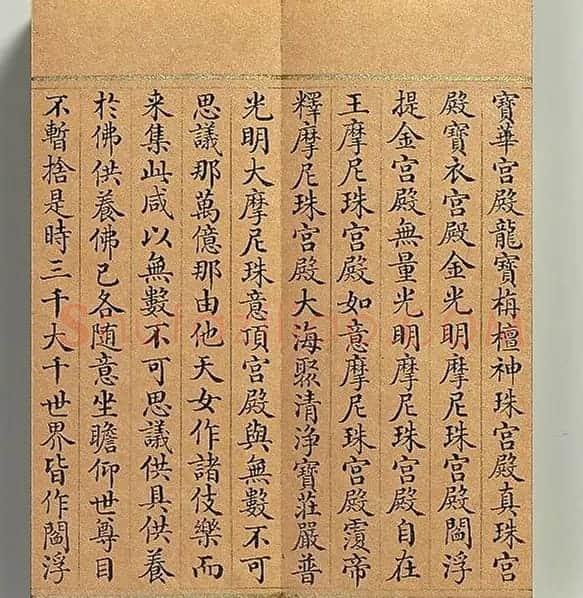 寶華宮殿龍寶栴檀神珠宮殿真珠宮
殿寶衣宮殿金光明摩尼珠宮殿閻浮
提金宮殿無量光明摩尼珠宮殿自在
王摩尼珠宮殿如意摩尼珠宮殿帝
釋摩尼珠宮殿大海聚清淨寶莊嚴普
光明大摩尼珠意頂宮殿與無數不可
思議那萬億那由他天女作諸伎樂而
来集此咸以無數不可思議供具供養
於佛供養佛已各隨意坐瞻仰世尊目
不暫捨是時三千大千世界皆作閻浮